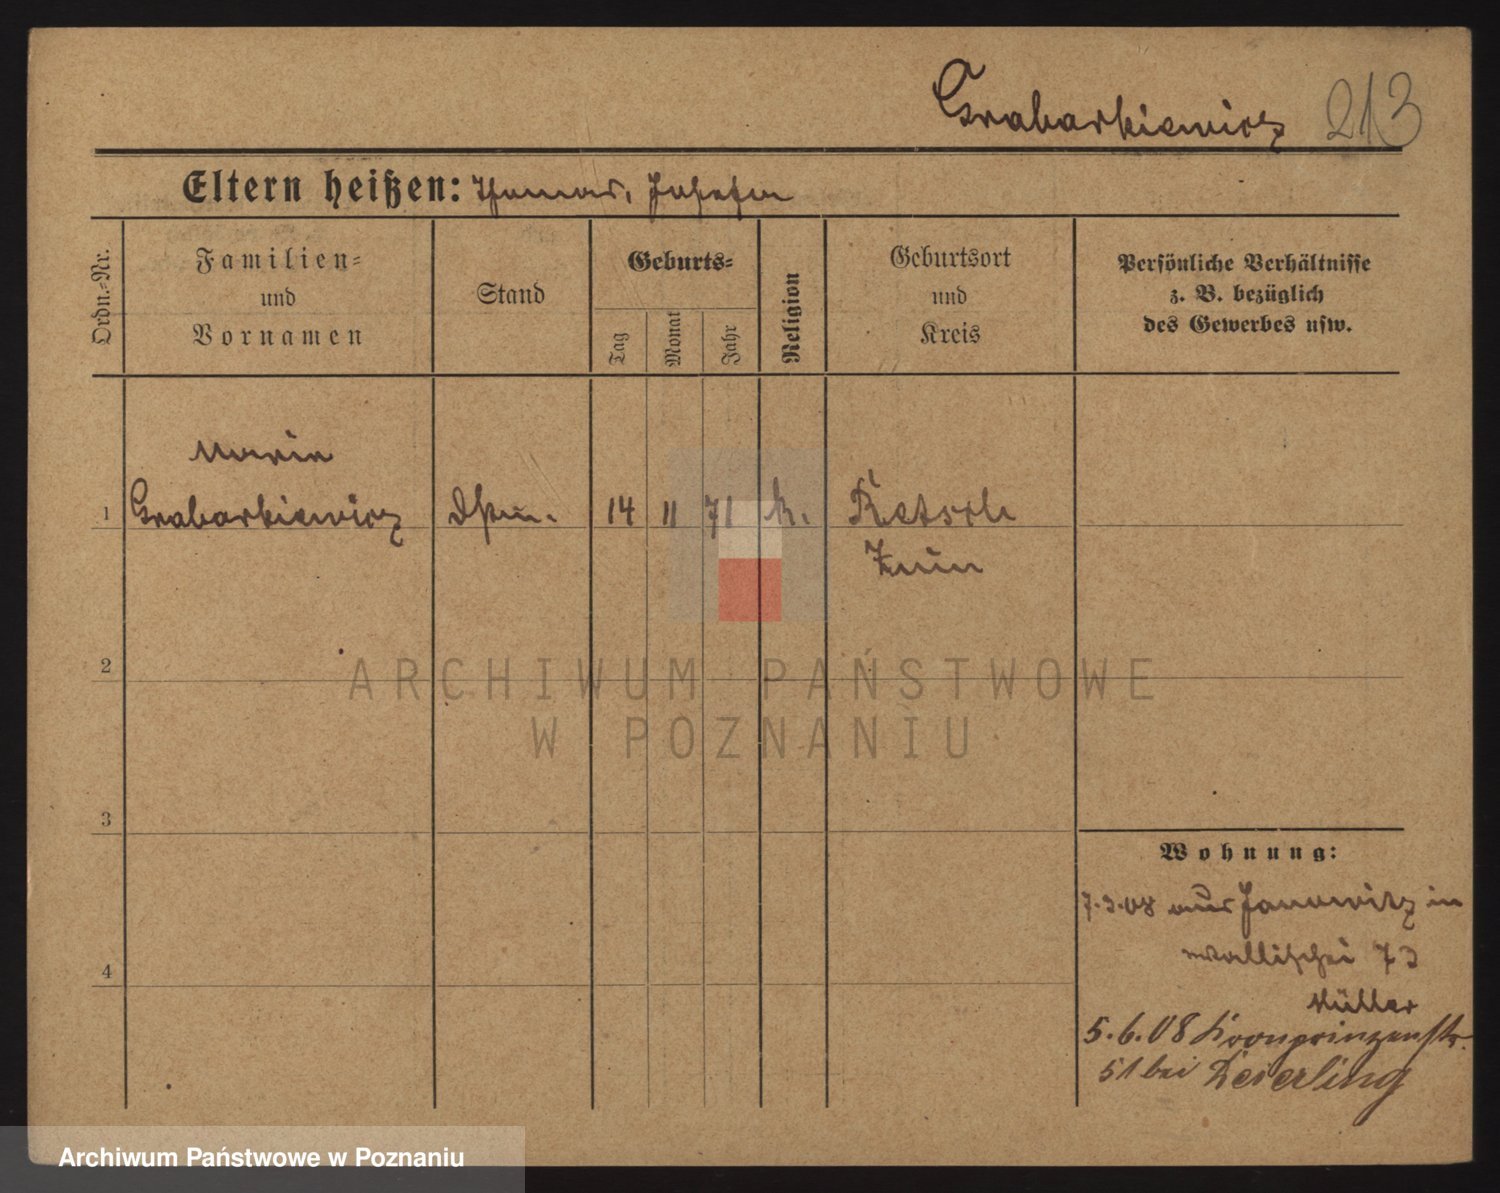 Grabarkiewicz 213
Eltern heißen: Thomas, Josefa
Ordn.-Nr.
Familien-
und
Vornamen
Stand
Geburts-
Tag
Monat
Jahr
Religion
Geburtsort
und
Kreis
Persönliche Verhältnisse
z. B. bezüglich
des Gewerbes usw.
Maria
1 Grabarkiewicz 14 11 71 k.
Znin
2
ARCHIWUM PAŃSTWOWE
W POZNANIU
3
Wohnung:
7.3.08 aus Janowitz in
Wallischei 73
Müller
4
5.6.08 Kronprinzenstr.
51 bei
Archiwum Państwowe w Poznaniu